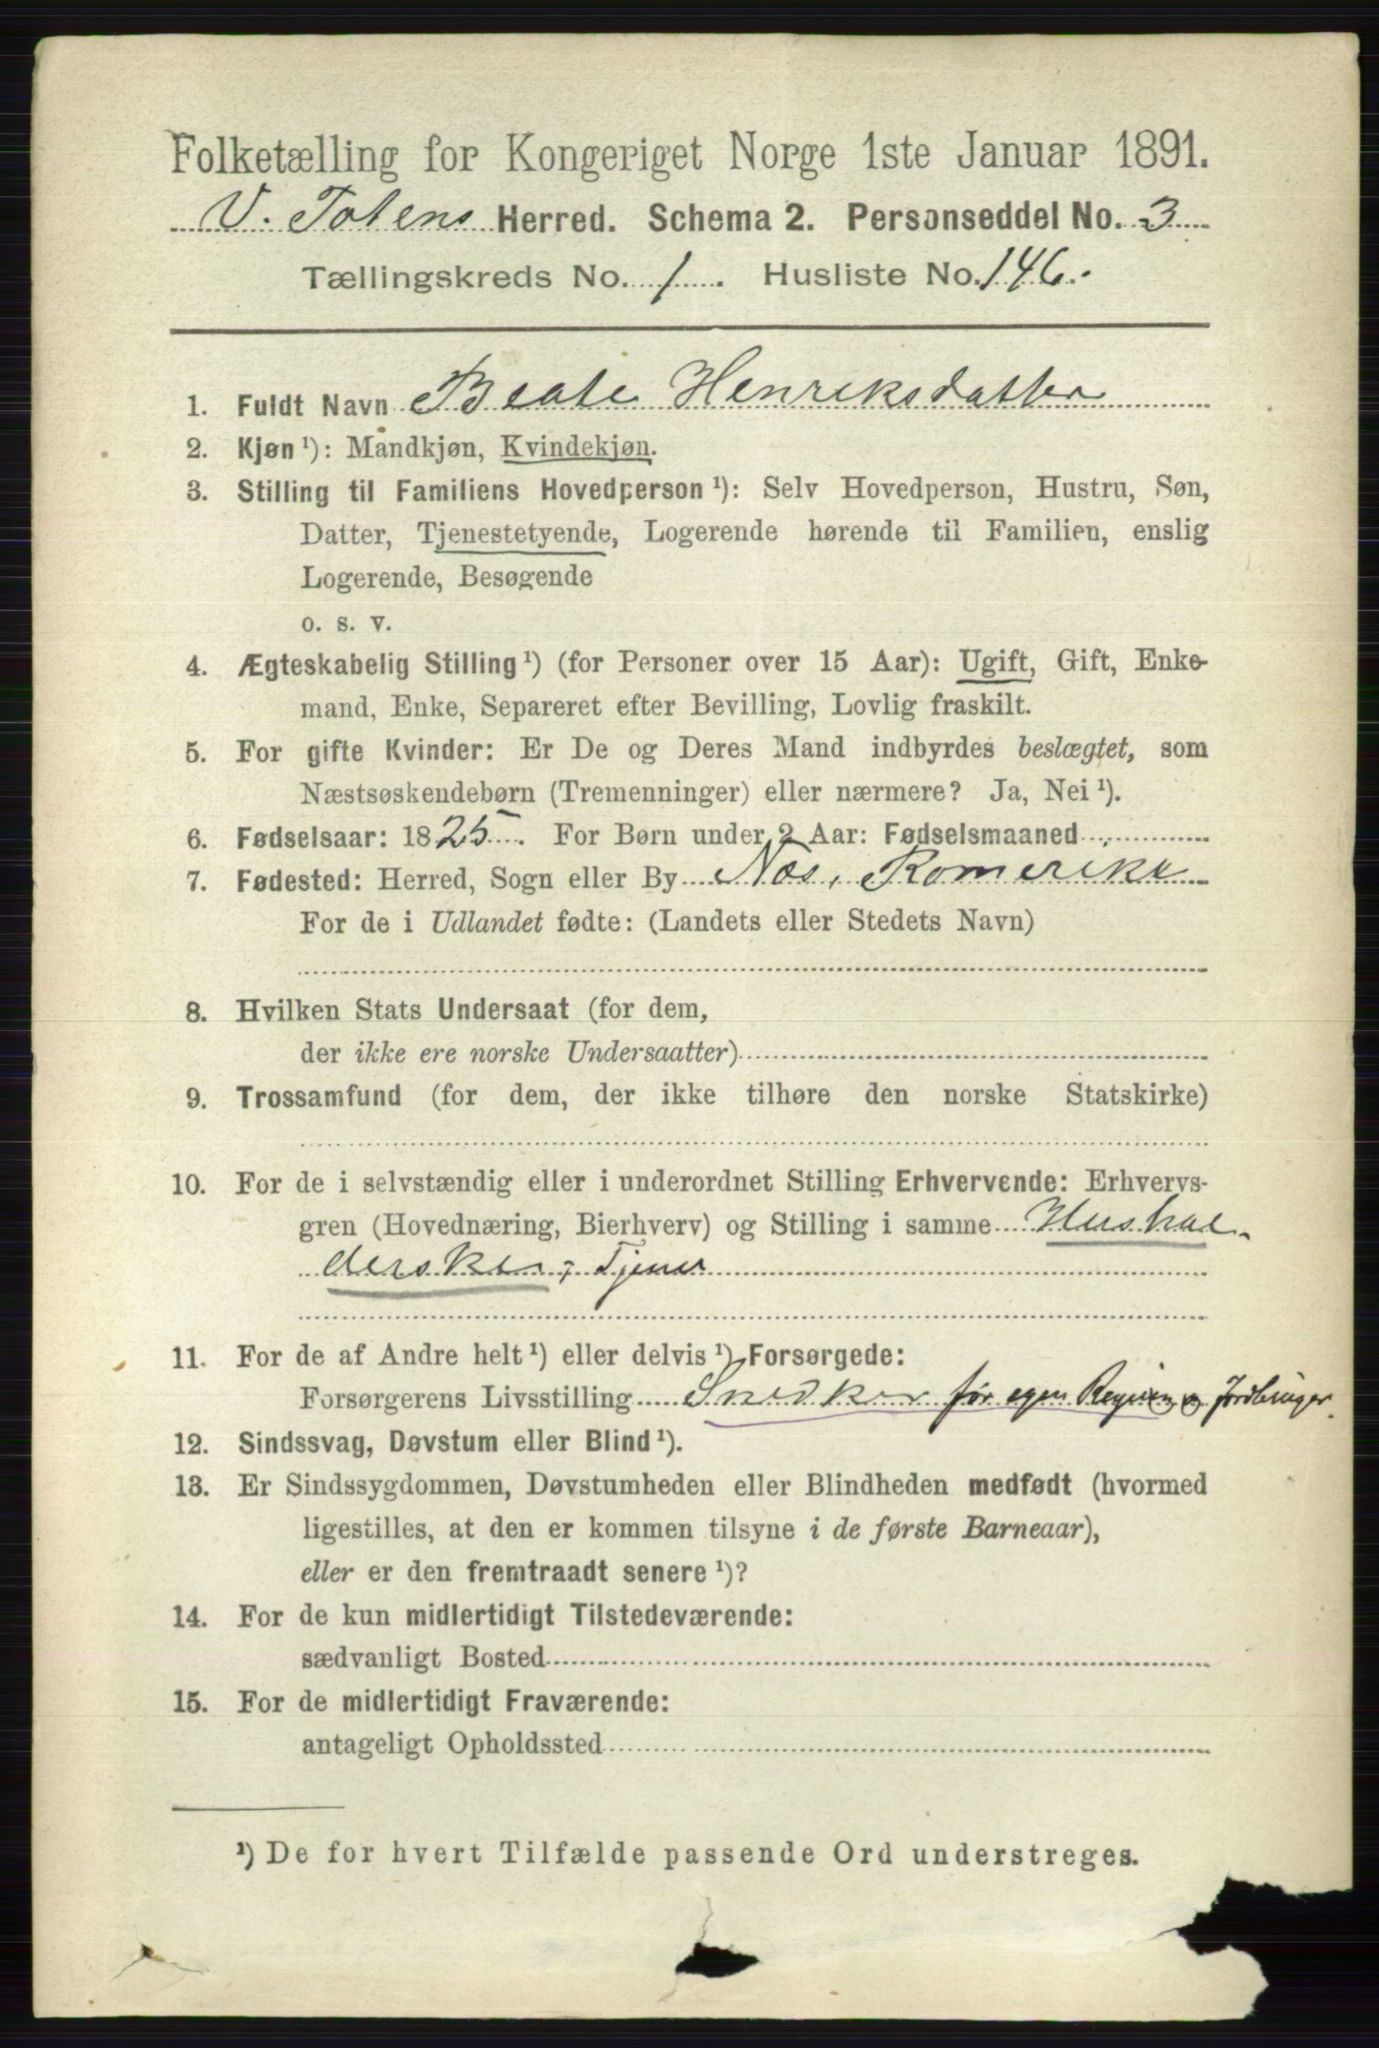 Folketælling for Kongeriget Norge 1ste Januar 1891.
V. Totens Herred. Schema 2. Personseddel No. 3
Tællingskreds No. 1. Husliste No. 146.
1. Fuldt Navn Beate Henriksdatter
2. Kjøn ¹): Mandkjøn, Kvindekjøn.
3. Stilling til Familiens Hovedperson ¹): Selv Hovedperson, Hustru, Søn,
Datter, Tjenestetyende, Logerende hørende til Familien, enslig
Logerende, Besøgende
o. s. v.
4. Ægteskabelig Stilling ¹) (for Personer over 15 Aar): Ugift, Gift, Enke-
mand, Enke, Separeret efter Bevilling, Lovlig fraskilt.
5. For gifte Kvinder: Er De og Deres Mand indbyrdes beslægtet, som
Næstsøskendebørn (Tremenninger) eller nærmere? Ja, Nei ¹).
6. Fødselsaar: 1825. For Børn under 2 Aar: Fødselsmaaned
7. Fødested: Herred, Sogn eller By Næs, Romerike
For de i Udlandet fødte: (Landets eller Stedets Navn)
8. Hvilken Stats Undersaat (for dem,
der ikke ere norske Undersaatter)
9. Trossamfund (for dem, der ikke tilhøre den norske Statskirke)
10. For de i selvstændig eller i underordnet Stilling Erhvervende: Erhvervs-
gren (Hovednæring, Bierhverv) og Stilling i samme Hushol-
derske, Tjener
11. For de af Andre helt ¹) eller delvis ¹) Forsørgede:
Forsørgerens Livsstilling Snedker for egen Regning Jordbruger
12. Sindssvag, Døvstum eller Blind ¹).
13. Er Sindssygdommen, Døvstumheden eller Blindheden medfødt (hvormed
ligestilles, at den er kommen tilsyne i de første Barneaar),
eller er den fremtraadt senere ¹)?
14. For de kun midlertidigt Tilstedeværende:
sædvanligt Bosted
15. For de midlertidigt Fraværende:
antageligt Opholdssted
¹) De for hvert Tilfælde passende Ord understreges.